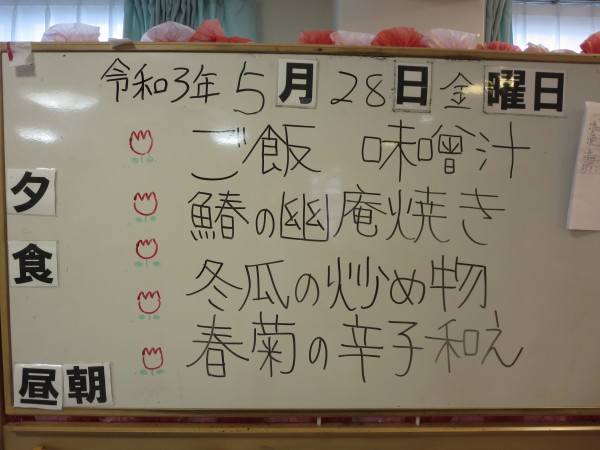 令和3年 5月28日 金曜日
ご飯 味噌汁
夕食
鰆の幽庵焼き
冬瓜の炒め物
春菊の辛子和え
昼 朝